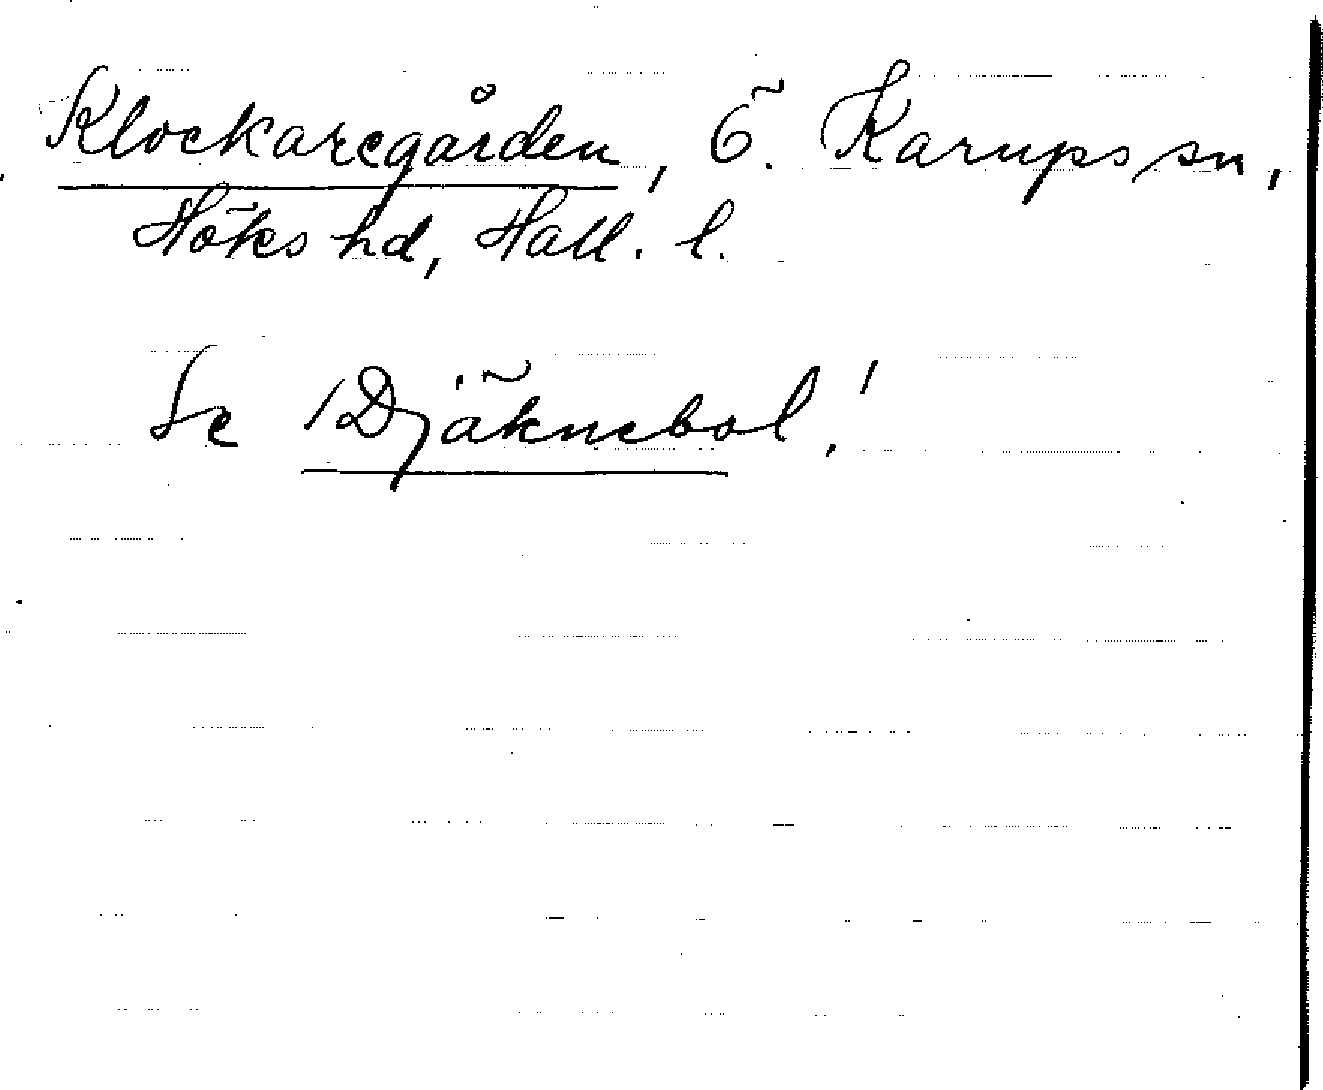 Klockaregården, Ö. Karups sn,
Höks hd, Hall. l.
Se Djäknebol!